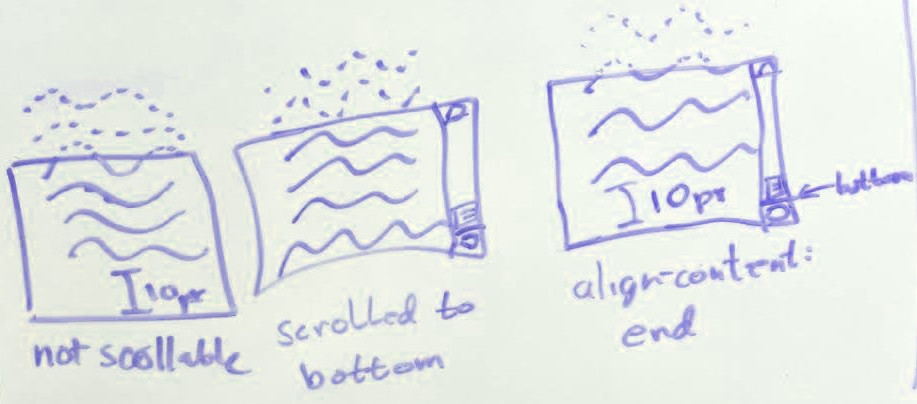 I 10px
not scollable
scrolled to
bottom
I 10px
bottom
align-content:
end